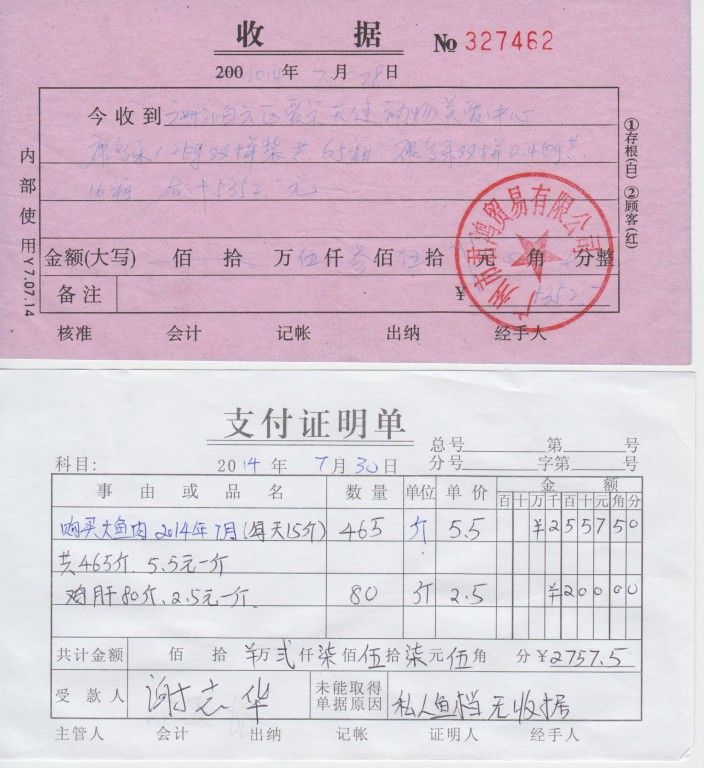 收据
№ 327462
2002014年7月28日
今收到广州市白云区爱宗天使动物关爱中心
1.25kg双拼 共65箱 双拼0.45kg共
16箱 合计5352元
内部使用 Y7.07.14
①存根(白) ②顾客(红)
金额(大写) 佰 拾 万伍仟叁佰伍拾 元 角 分整
备注 ¥
广州市 鸿贸易有限公司
核准 会计 记帐 出纳 经手人
支付证明单
总号 第 号
科目: 2014年7月30日 分号 字第 号
事由或品名 数量 单位 单价 金额
百十万千百十元角分
购买大鱼肉 2014年7月(每天15斤) 465 斤 5.5 ¥255750
共465斤. 5.5元一斤
鸡肝80斤、2.5元一斤. 80 斤 2.5 ¥20000
共计金额 佰 拾 万 弍 仟 柒 佰 伍 拾 柒 元 伍 角 分 ¥2757.5
受款人 谢志华 未能取得单据原因 私人鱼档 无收据
主管人 会计 出纳 记帐 证明人 经手人